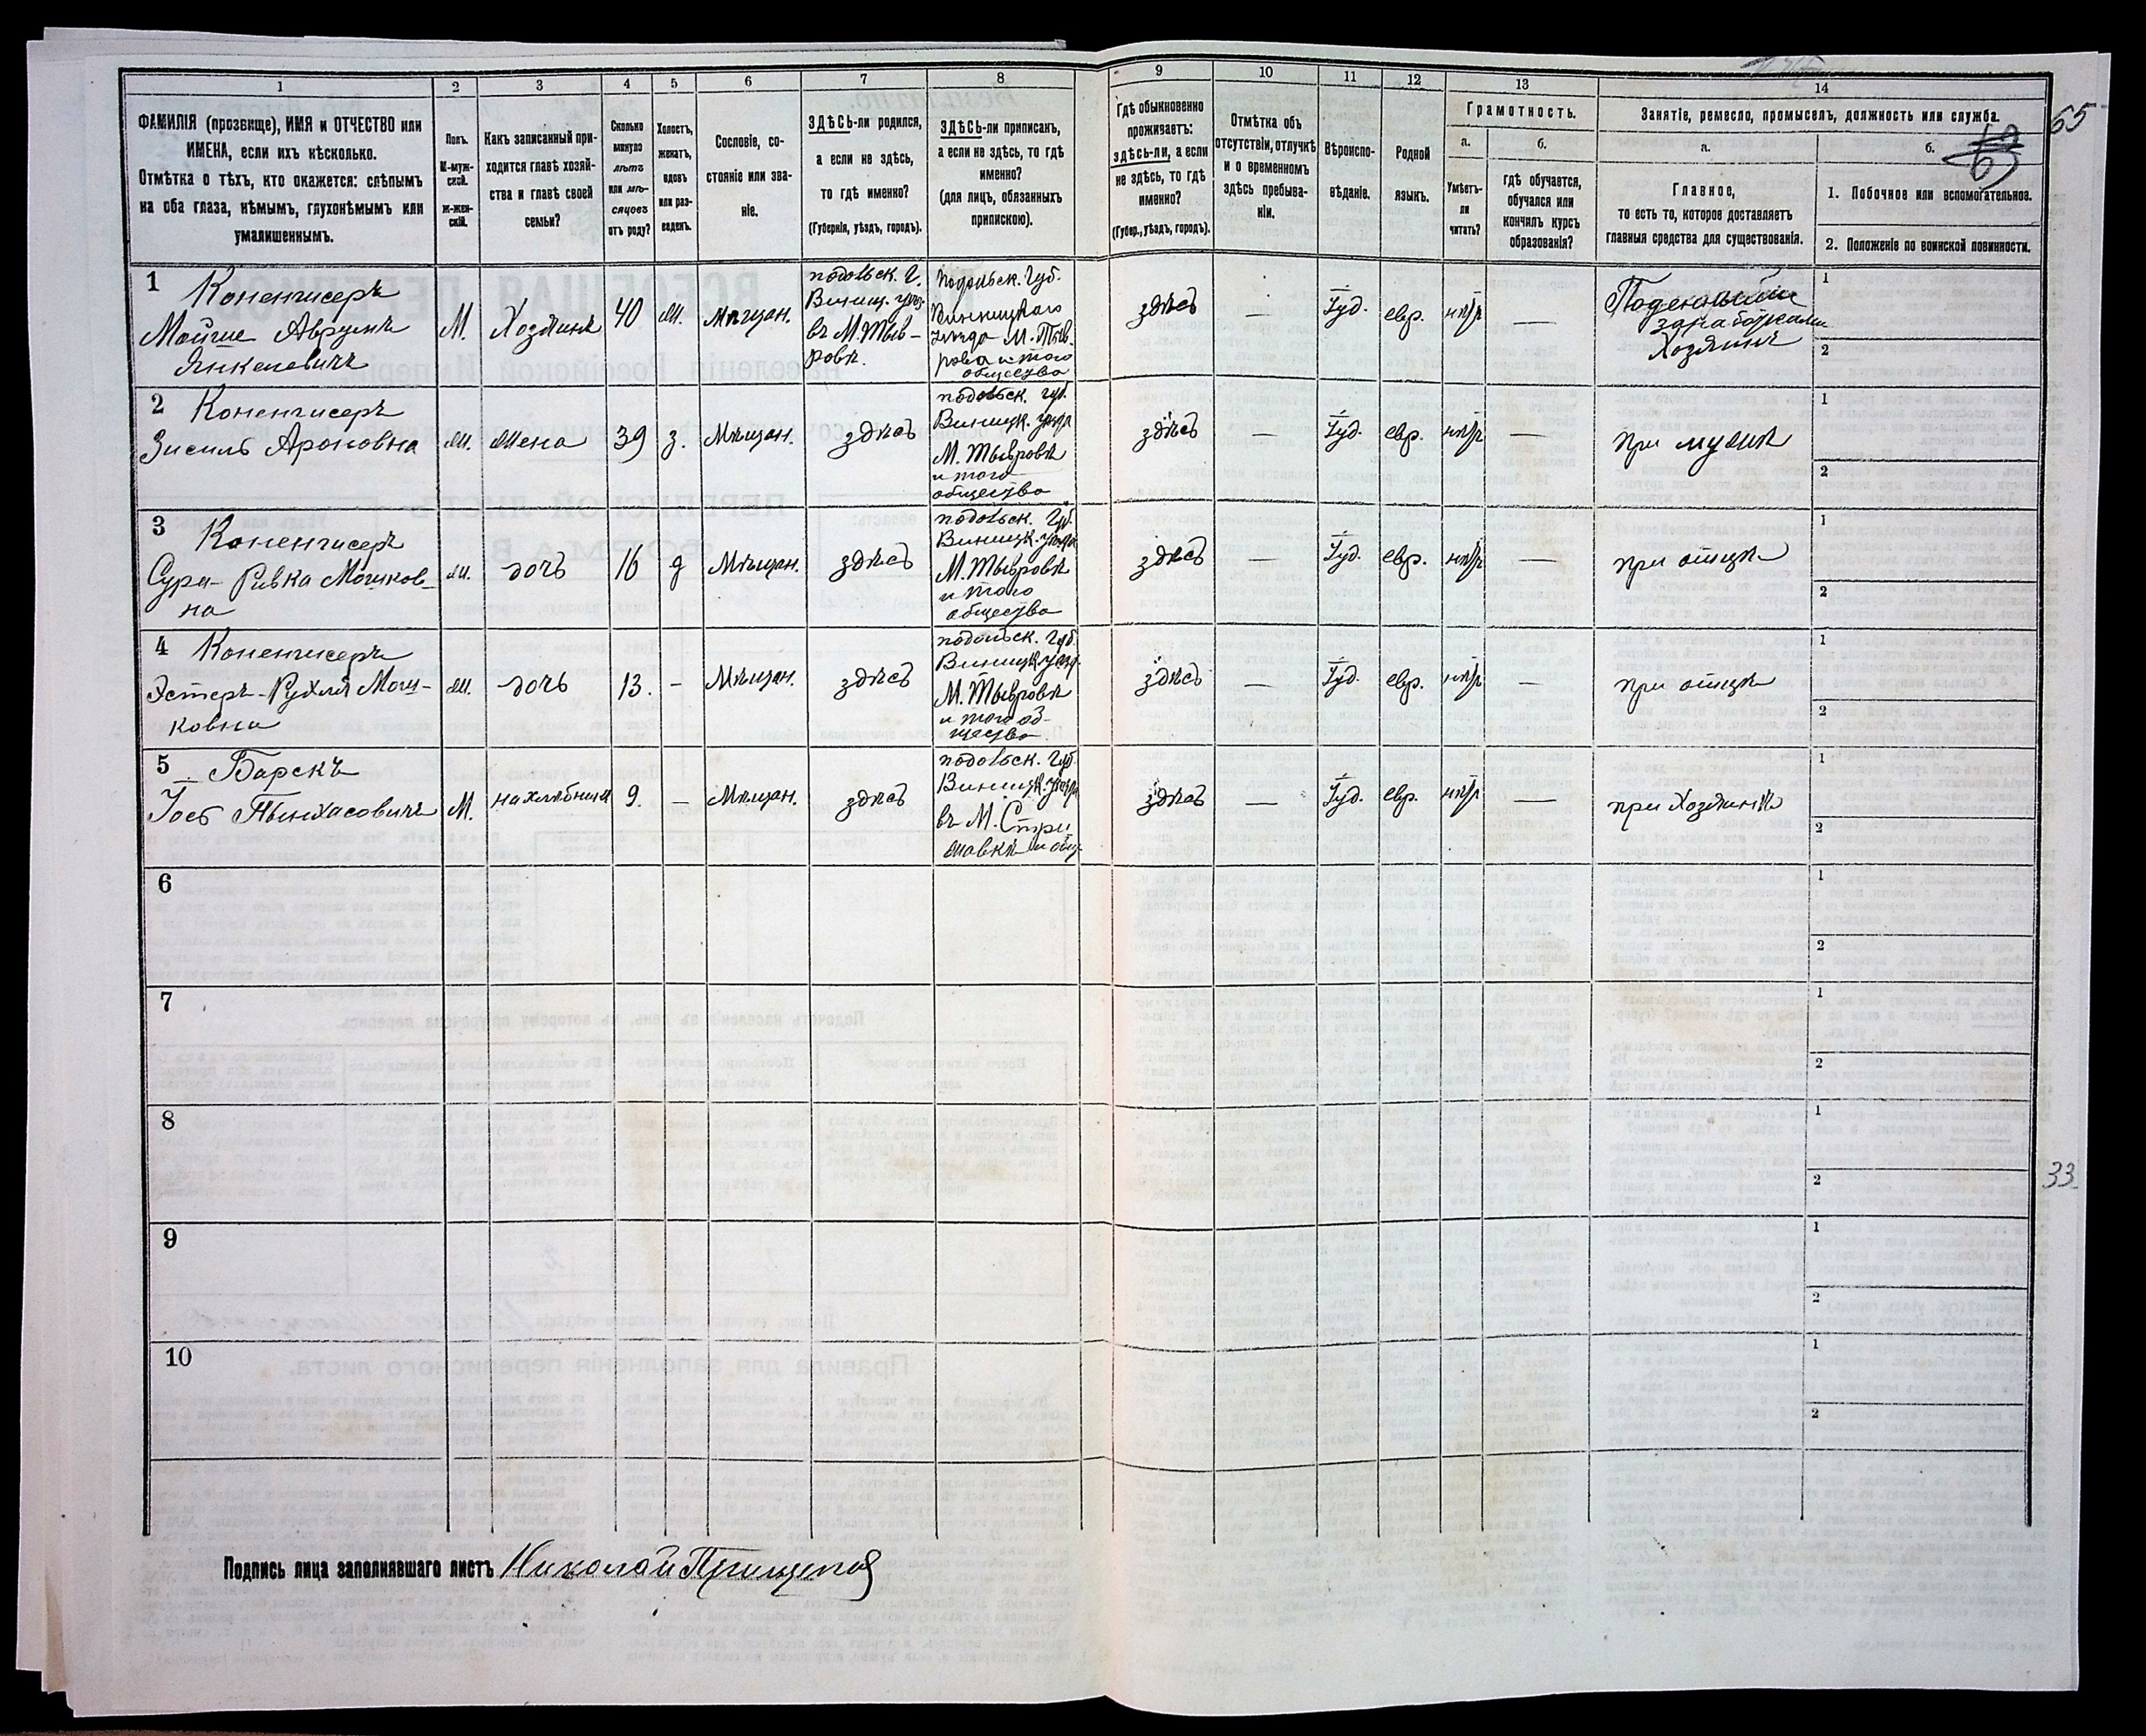 1
2
3
4
5
6
7
8
9
10
11
12
13
14
65
33
ФАМИЛІЯ (прозвище), ИМЯ и ОТЧЕСТВО или
ИМЕНА, если ихъ нѣсколько.
Отмѣтка о тѣхъ, кто окажется: слѣпымъ
на оба глаза, нѣмымъ, глухонѣмымъ или
умалишеннымъ.
Полъ.
М-муж-
ской.
Ж-жен-
скій.
Какъ записанный при-
ходится главѣ хозяй-
ства и главѣ своей
семьи?
Сколько
минуло
лѣтъ
или мѣ-
сяцовъ
отъ роду?
Холостъ,
женатъ,
вдовъ
или раз-
веденъ.
Сословіе, со-
стояніе или зва-
ніе.
ЗДѢСЬ-ли родился,
а если не здѣсь,
то гдѣ именно?
(Губернія, уѣздъ, городъ).
ЗДѢСЬ-ли приписанъ,
а если не здѣсь, то гдѣ
именно?
(для лицъ, обязанныхъ
припискою).
Гдѣ обыкновенно
проживаетъ:
здѣсь-ли, а если
не здѣсь, то гдѣ
именно?
(Губер., уѣздъ, городъ).
Отмѣтка объ
отсутствіи, отлучкѣ
и о временномъ
здѣсь пребыва-
ніи.
Вѣроиспо-
вѣданіе.
Родной
языкъ.
Грамотность.
а.
Умѣетъ-
ли
читать?
б.
гдѣ обучается,
обучался или
кончилъ курсъ
образованія?
Занятіе, ремесло, промыселъ, должность или служба.
а.
Главное,
то есть то, которое доставляетъ
главныя средства для существованія.
б.
1. Побочное или вспомогательное.
2. Положеніе по воинской повинности.
1
Коненчисеръ
Мойше Аврумъ
Янкелевичъ
М.
Хозяинъ
40
ж.
Мѣщан.
подольск. г.
Виниц. уѣз.
въ М. Тыв-
ровѣ.
Подольск. Губ.
Винницкаго
уѣзда М. Тыв-
рова и того
общества
здѣсь
—
Іуд.
евр.
—
Поденными
заработками
Хозяинъ
1
2
2
Коненчисеръ
Зисиль Ароновна
ж.
жена
39
з.
Мѣщан.
здѣсь
подольск. губ.
Виницк. уѣзд
М. Тывровѣ
и того
общества
здѣсь
—
Іуд.
евр.
—
при мужѣ
1
2
3
Коненчисеръ
Сура-Ривка Мошков-
на
ж.
дочь
16
д
Мѣщан.
здѣсь
подольск. Губ.
Виницк. уѣзда
М. Тывровѣ
и того
общества
здѣсь
—
Іуд.
евр.
—
при отцѣ
1
2
4
Коненчисеръ
Эстеръ-Рухля Мош-
ковна
ж.
дочь
13.
—
Мѣщан.
здѣсь
подольск. Губ.
Виницк. уѣзд.
М. Тывровѣ
и того об-
щества
здѣсь
—
Іуд.
евр.
—
при отцѣ
1
2
5
Барскъ
Іось Пынхасовичъ
М.
нахлѣбникъ
9.
—
Мѣщан.
здѣсь
подольск. Губ.
Виницк. уѣзда
въ М. Стри
жавкѣ и общ.
здѣсь
—
Іуд.
евр.
—
при Хозяинѣ
1
2
6
1
2
7
1
2
8
1
2
9
1
2
10
1
2
Подпись лица заполнявшаго листъ Николай Прищепа